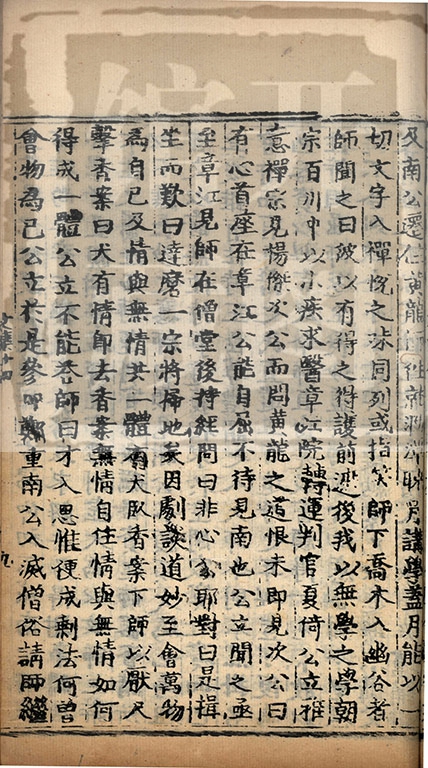 及南公遷住黃龍師往就泐潭月講學蓋月能以一
切文字入禪慨之來同列或指笑師下喬木入幽谷者
師聞之曰彼以有得之得護前遮後我以無學之學朝
宗百川中以小疾求醫章江院轉運判官夏倚公立雅
意禪宗見楊傑次公而問黃龍之道恨未即見次公曰
有心首座在章江公能自屈不待見南也公立聞之亟
至章江見師在僧堂後持經問曰非心公耶對曰是揖
坐而歎曰達磨一宗將掃地矣因劇談道妙至會萬物
為自己及情與無情共一體有犬臥香案下師以厭尺
擊香案曰犬有情即去香案無情自住情與無情如何
得成一體公立不能答師曰才入思惟便成剩法何曾
會物為己公立於是參叩鄭重南公入滅僧俗請師繼
九